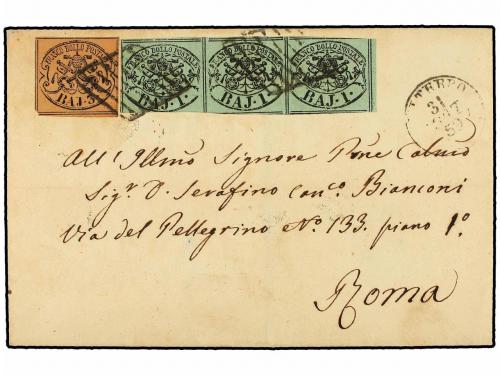 FRANCO BOLLO POSTALE FRANCO BOLLO POSTALE FRANCO BOLLO POSTALE FRANCO BOLLO POSTALE
BAJ. 3. BAJ. 1. BAJ. 1. BAJ. 1.
VITERBO
31
59
All' Illmo Signore Pne Colmo
Sigr. D. Serafino canco. Bianconi
Via del Pellegrino No. 133. piano 1o.
Roma